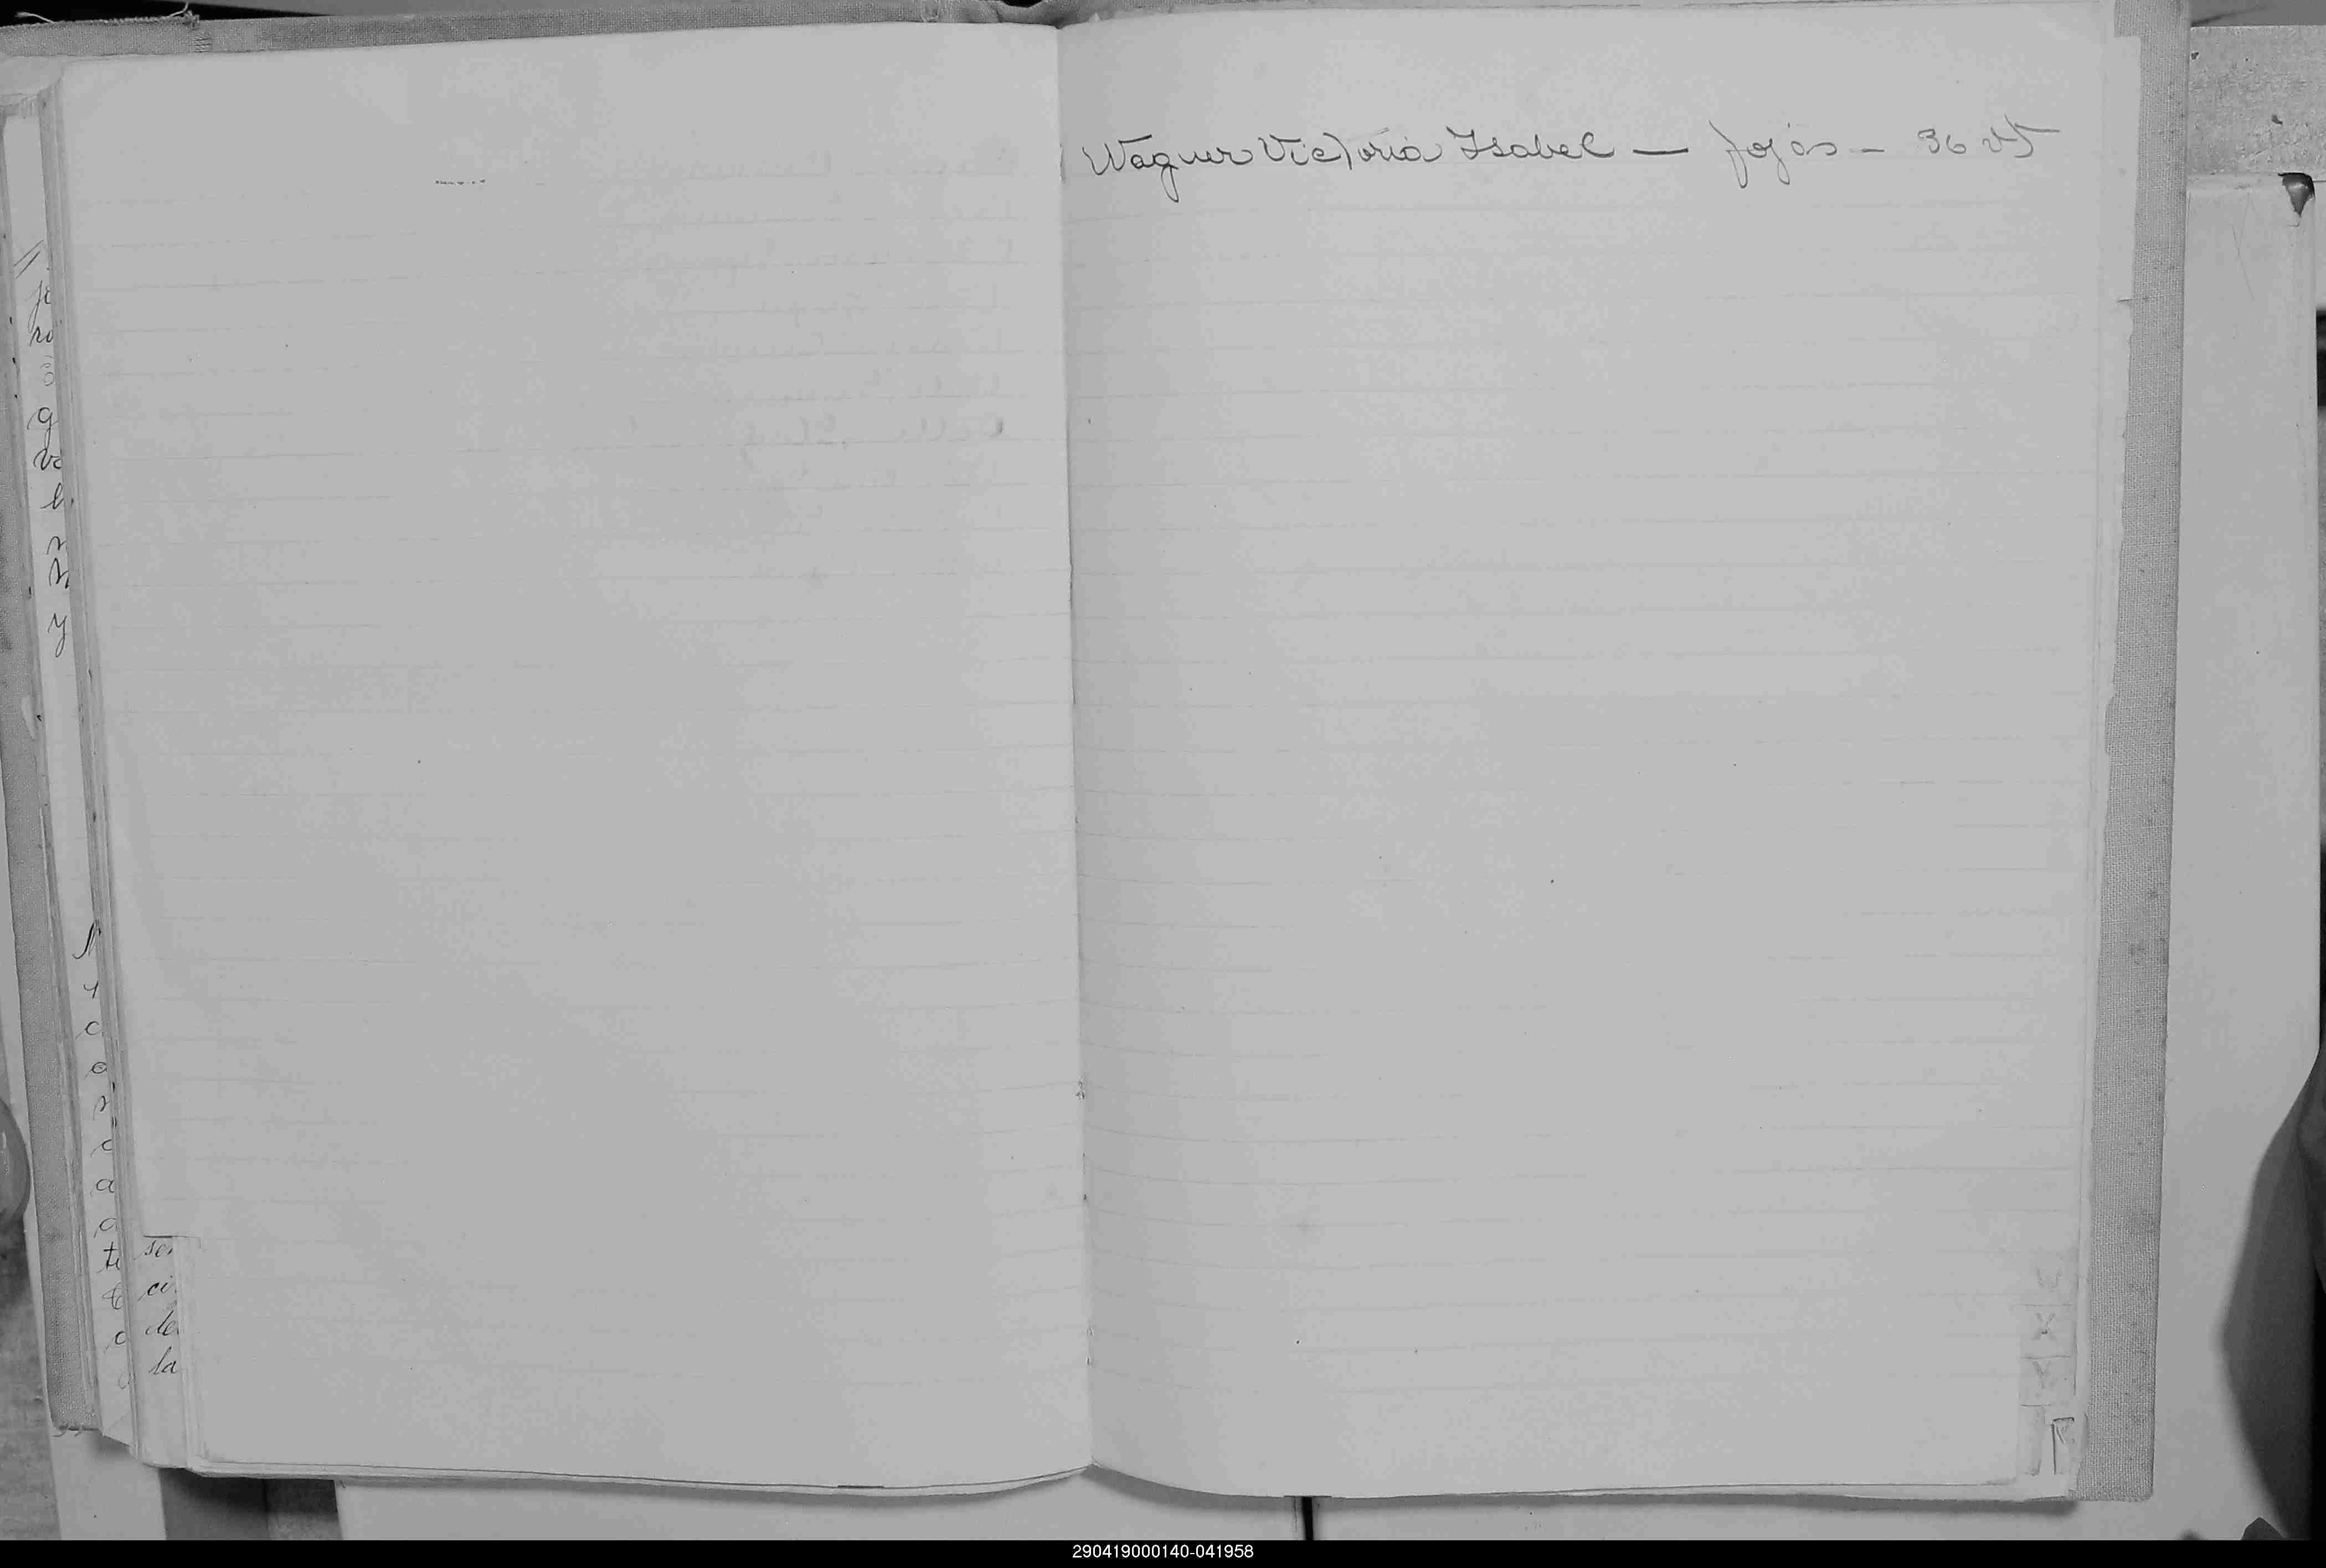 Wagner Victoria Isabel — fojas — 36 vt
se
ci
de
la
W
X
Y
290419000140-041958